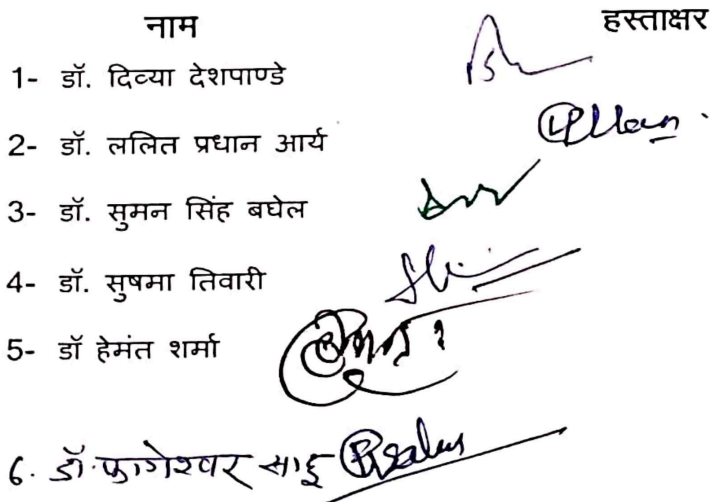 नाम हस्ताक्षर
1- डॉ. दिव्या देशपाण्डे
2- डॉ. ललित प्रधान आर्य
3- डॉ. सुमन सिंह बघेल
4- डॉ. सुषमा तिवारी
5- डॉ हेमंत शर्मा
6. डॉ. फागेश्वर साहू